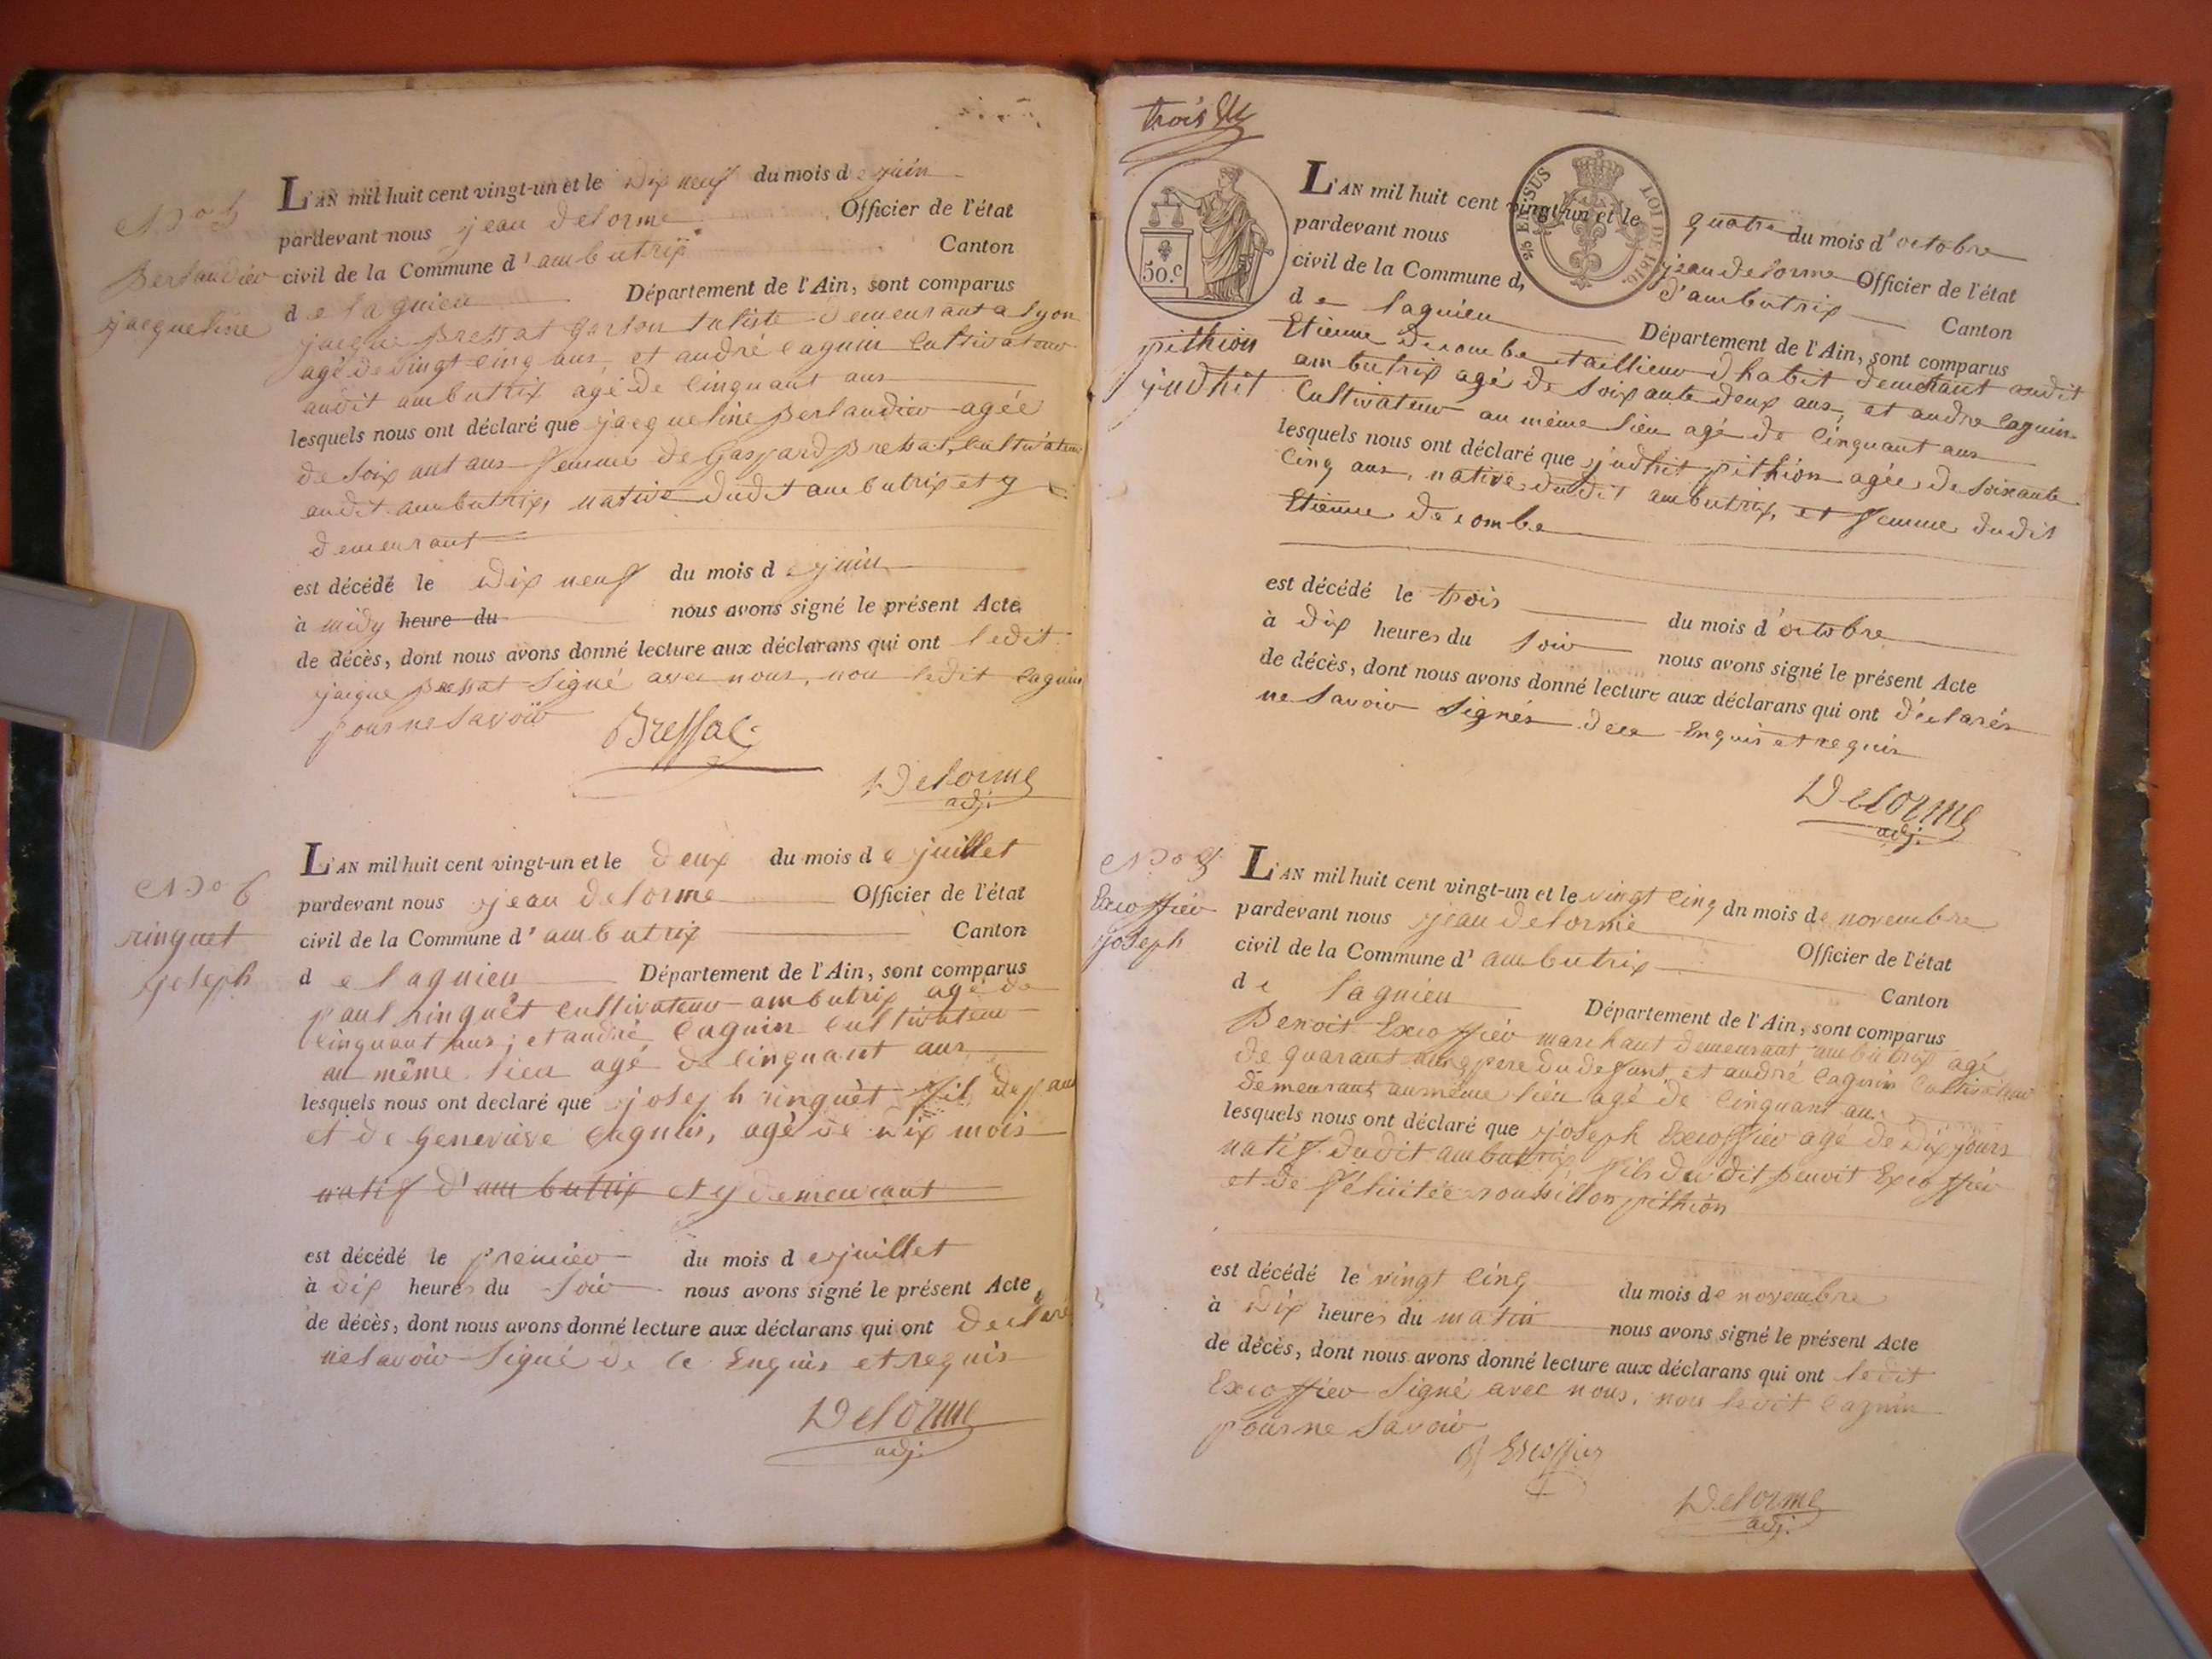 N.o 5
Berlandier
jacqueline
L'AN mil huit cent vingt-un et le dix neuf du mois de juin
pardevant nous jean delorme Officier de l'état
civil de la Commune d'ambutrix Canton
de lagnieu Département de l'Ain, sont comparus
jacque Bressat demeurant a lyon
agé de vingt cinq ans, et andré caguin Cultivateur
audit ambutrix agé de cinquant ans
lesquels nous ont déclaré que jacqueline Berlandier agée
de soixant ans femme de Gaspard Bressat, Cultivateur
audit ambutrix, native dudit ambutrix et y
demeurant
est décédé le dix neuf du mois de juin
à midy heure du nous avons signé le présent Acte
de décès, dont nous avons donné lecture aux déclarans qui ont ledit
jacque Bressat signé avec nous, non ledit caguin
pour ne savoir
Bressac
Delorme
adj.
N.o 6
ringuet
joseph
L'AN mil huit cent vingt-un et le deux du mois de juillet
pardevant nous jean delorme Officier de l'état
civil de la Commune d'ambutrix Canton
de lagnieu Département de l'Ain, sont comparus
paul ringuet cultivateur ambutrix agé de
cinquant ans; et andré caguin cultivateur
au même lieu agé de cinquant ans
lesquels nous ont declaré que joseph ringuèt fil de paul
et de Geneviève caguin, agé de dix mois
natif d'ambutrix et y demeurant
est décédé le premier du mois de juillet
à dix heures du soir nous avons signé le présent Acte
de décès, dont nous avons donné lecture aux déclarans qui ont declaré
ne savoir signé de ce Enquis et requis
Delorme
adj.
trois
50.c
25 EN SUS
LOI DE 1816.
pithion
judhit
L'AN mil huit cent vingt-un et le quatre du mois d'octobre
pardevant nous jean delorme Officier de l'état
civil de la Commune d, d'ambutrix Canton
de lagnieu Département de l'Ain, sont comparus
Etienne decombe taillieur d habit demeurant audit
ambutrix agé de soixante deux ans, et andre caguin
Cultivateur au même lieu agé de cinquant ans
lesquels nous ont déclaré que judhit pithion agée de soixante
Cinq ans, native dudit ambutrix, et femme dudit
Etienne decombe
est décédé le trois du mois d'octobre
à dix heures du soir nous avons signé le présent Acte
de décès, dont nous avons donné lecture aux déclarans qui ont déclarés
ne savoir signés dece Enquis et requis
Delorme
adj.
N.o 8
Excoffier
joseph
L'AN mil huit cent vingt-un et le vingt cinq dn mois de novembre
pardevant nous jean delorme Officier de l'état
civil de la Commune d'ambutrix Canton
de lagnieu Département de l'Ain, sont comparus
Benoit Excoffier marchant demeurant ambutrix agé
de quarant cinq pere du defunt et andré caguin Cultivateur
demeurant au même lieu agé de cinquant ans
lesquels nous ont déclaré que joseph Excoffier agé de dix jours
natif dudit ambutrix, fils du dit Benoit Excoffier
et de félicitée roussillon pithion
est décédé le vingt cinq du mois de novembre
à dix heures du matin nous avons signé le présent Acte
de décès, dont nous avons donné lecture aux déclarans qui ont ledit
Excoffier signé avec nous, non ledit caguin
pour ne savoir
B Escoffier
Delorme
adj.